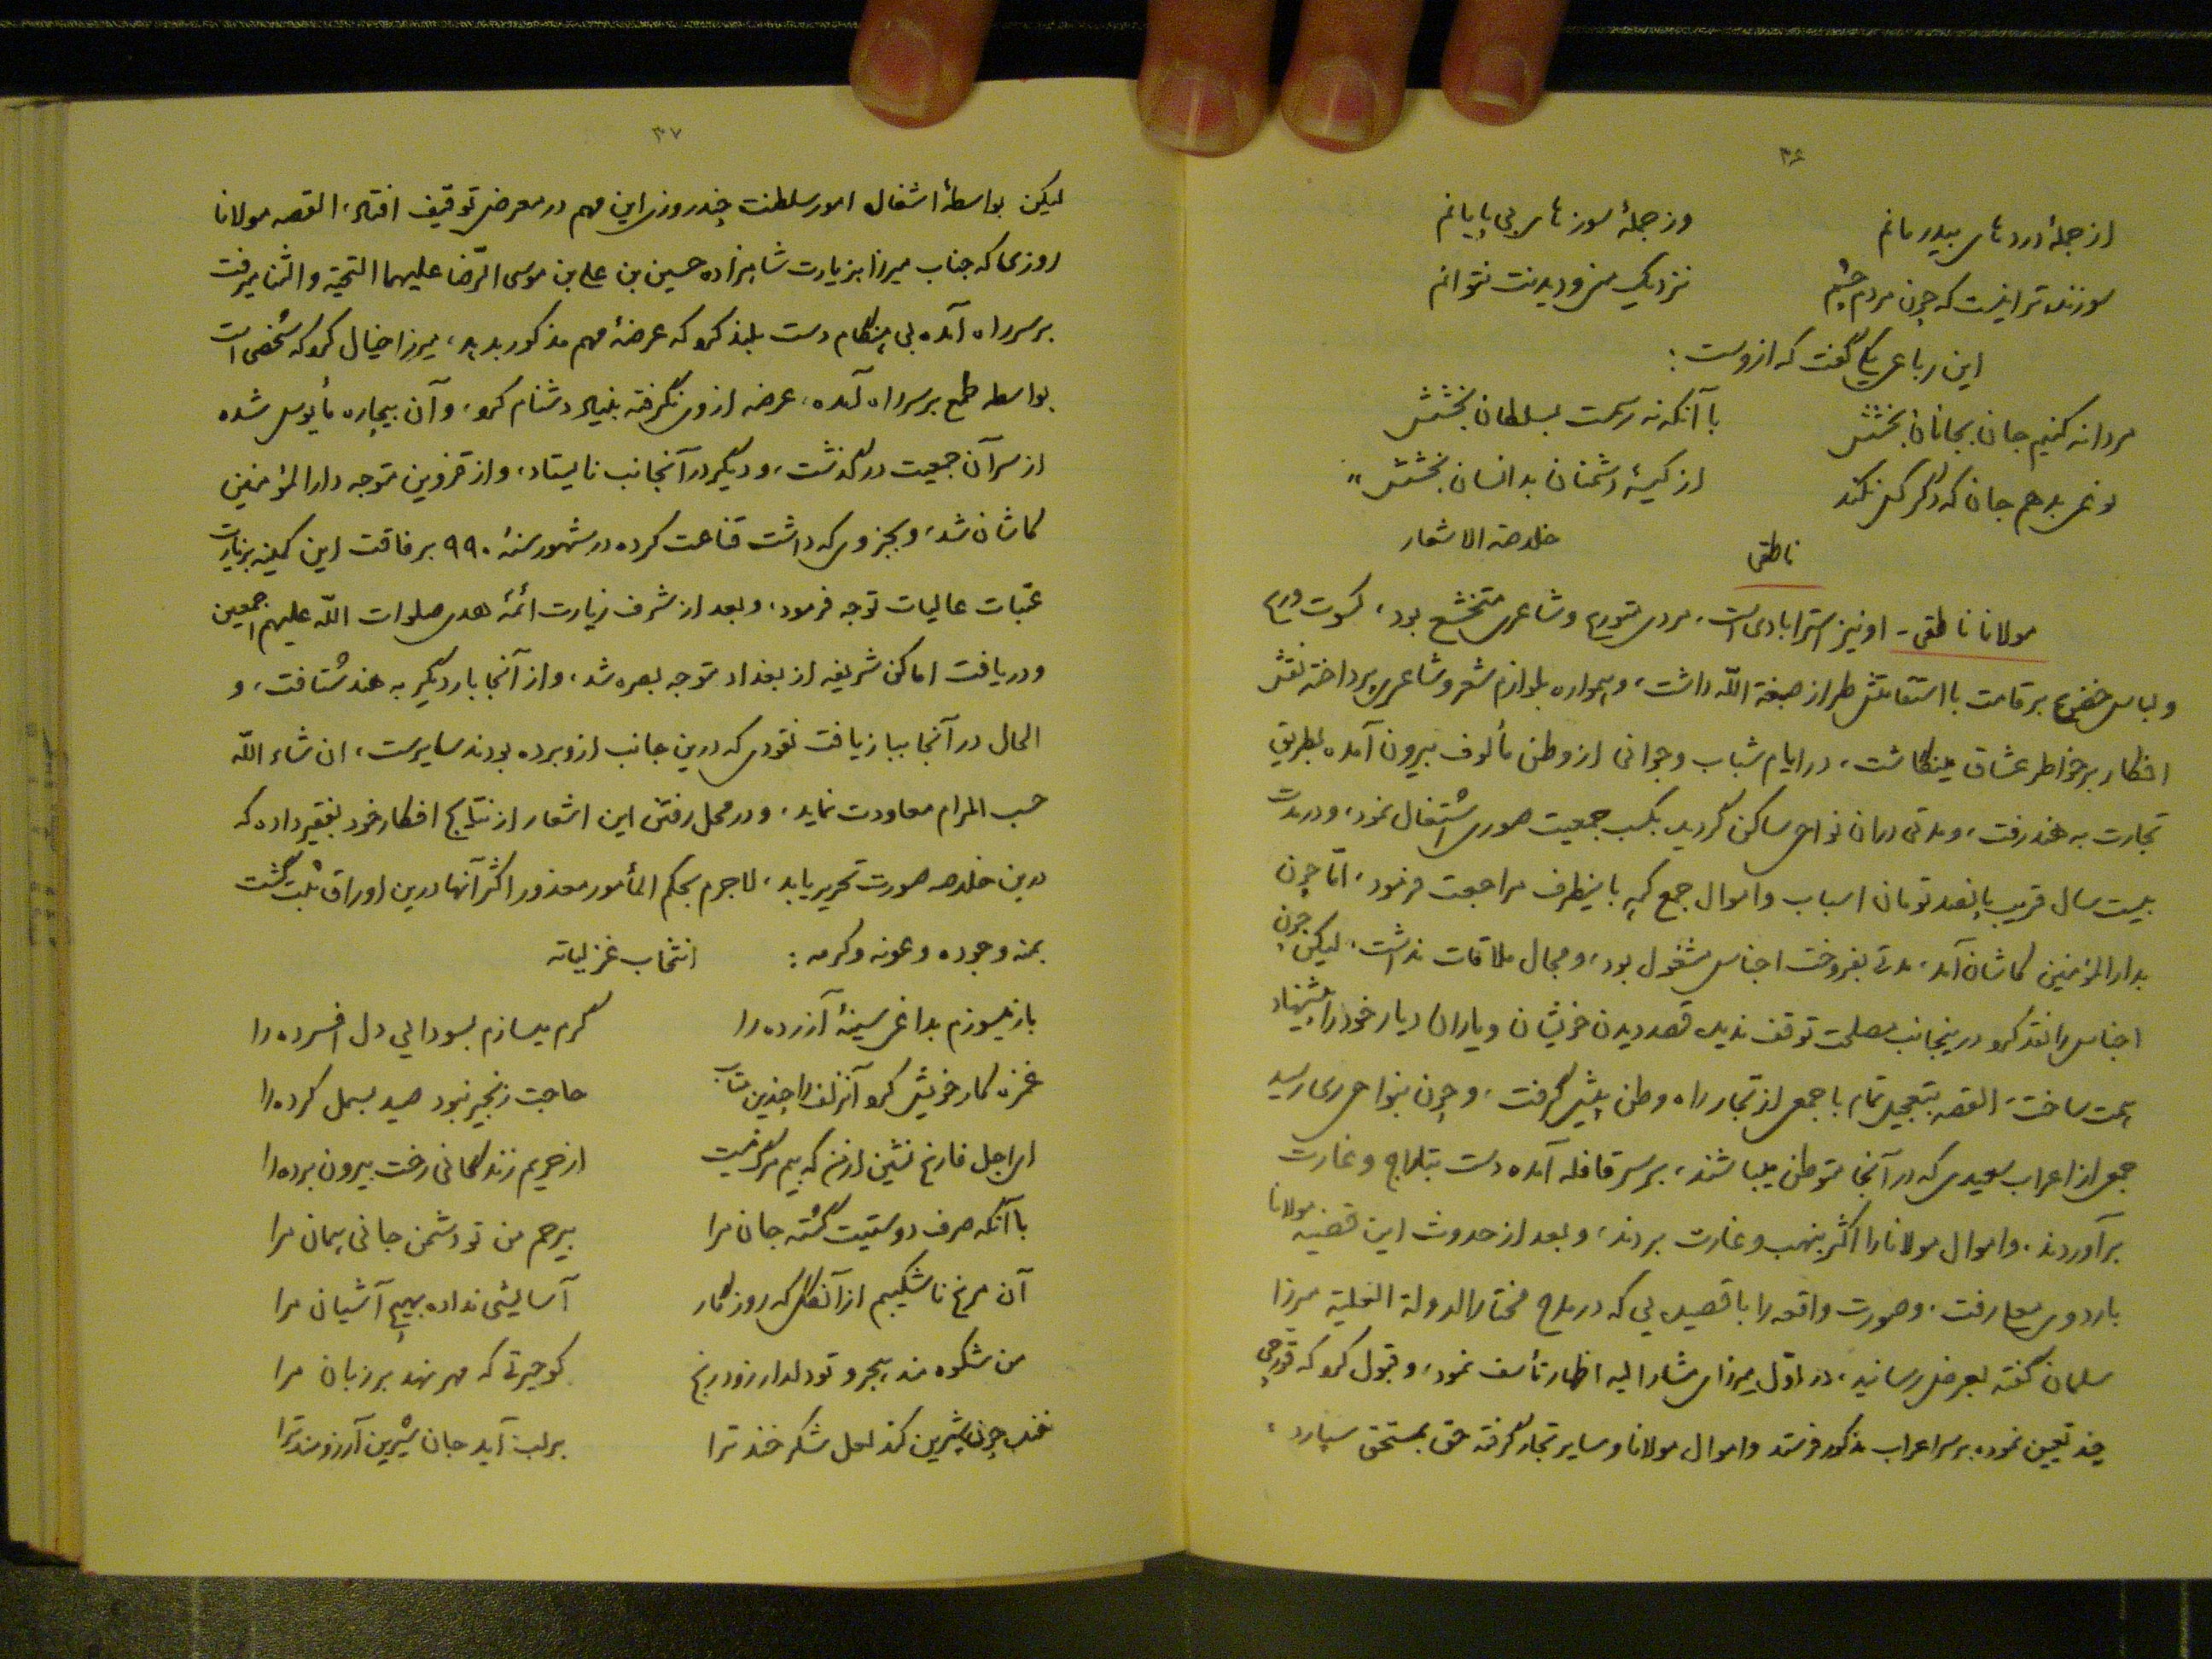 ۳۶
از جملهٔ دردهای بیدرمانم وز جملهٔ سوزهای بی پایانم
سوزنده‌تر اینست که چون مردم چشم نزدیک منی و دیدنت نتوانم
این رباعی یکی گفت که ازوست:
مردانه کنیم جان بجانان بخشش با آنکه نه رسمت بسلطان بخشش
بدانم جان که دگر کس نکند از کیسهٔ دشمنان بدانسان بخشش"
ناطقی خلاصة الاشعار
مولانا ناطقی - او نیز استرابادی است، مردی متورع و شاعری متخشع بود، کسوت ورع
و لباس خضوع بر قامت با استقامتش طراز صبغة الله داشت، و همواره بلوازم شعر و شاعری پرداخته نقش
افکار بر خواطر عشاق مینگاشت، در ایام شباب و جوانی از وطن مألوف بیرون آمده بطریق
تجارت به هند رفت، و مدتی در آن نواحی ساکن گردید، بکسب جمعیت صوری اشتغال نمود، و در مدت
بیست سال قریب پانصد تومان اسباب و اموال جمع کرده باینطرف مراجعت فرمود، امّا چون
بدارالمؤمنین کاشان آمد، مدتی بفروخت اجناس مشغول بود، و مجال ملاقات نداشت، لیکن چون
اجناس را نقد کرد در ینجانب مصلحت توقف ندید، قصد دیدن خویشان و یاران دیار خود را پیشنهاد
همت ساخت، القصه بتعجیل تمام با جمعی از تجار راه وطن پیش گرفت، و چون بنواحی ری رسید
جمعی از اعراب سعیدی که در آنجا متوطن میباشند، بر سر قافله آمده دست بتاراج و غارت
برآوردند، و اموال مولانا را اکثر بنهب و غارت بردند، و بعد از حدوث این قضیه مولانا
باردوی معلی رفت، و صورت واقعه را با قصیده‌یی که در مدح مختارالدولة العلیة میرزا
سلمان گفته بعرض رسانید، در اوّل میرزای مشارالیه اظهار تأسف نمود، و قبول کرد که قورچی
چند تعیین نموده بر سر اعراب مذکور فرستد و اموال مولانا و سایر تجار گرفته حق بمستحق سپارد،
۳۷
لیکن بواسطهٔ اشغال امور سلطنت چند روزی این مهم در معرض توقیف افتاد، القصه مولانا
روزی که جناب میرزا بزیارت شاهزاده حسین بن علی بن موسی الرّضا علیهما التحیة و الثنا میرفت
بر سر راه آمده بی هنگام دست بلند کرد که عرضهٔ مهم مذکور بدهد، میرزا خیال کرد که شخصی است
بواسطه طمع بر سر راه آمده، عرضه از وی نگرفته بنیاد دشنام کرد، و آن بیچاره مأیوس شده
از سر آن جمعیت درگذشت، و دیگر در آنجانب نایستاد، و از قزوین متوجه دارالمؤمنین
کاشان شد، و بجزوی که داشت قناعت کرده در شهور سنهٔ ۹۹۰ برفاقت این کمینه بزیارت
عتبات عالیات توجه فرمود، و بعد از شرف زیارت ائمهٔ هدی صلوات الله علیهم اجمعین
و دریافت اماکن شریفه از بغداد متوجه بصره شد، و از آنجا بار دیگر به هند شتافت، و
الحال در آنجا ببازیافت نقودی که درین جانب ازو برده بودند سایرست، ان شاء الله
حسب المرام معاودت نماید، و در محل رفتن این اشعار از نتایج افکار خود بفقیر داده که
درین خلاصه صورت تحریر یابد، لاجرم بحکم المأمور معذور اکثر آنها درین اوراق ثبت گشت
بمنه وجوده و عونه و کرمه: انتخاب غزلیاته
باز میسوزم بداغی سینهٔ آزرده را گرم میسازم بسودایی دل افسرده را
غمزه کار خویش کرد آنزلف را چندین متاب حاجت زنجیر نبود صید بسمل کرده را
ای اجل فارغ نشین از من که بیم مرگ نیست از حریم زندگانی رخت بیرون برده را
با آنکه صرف دوستیت گشته جان مرا بیرحم من تو دشمن جانی همان مرا
آن مرغ ناشکیبم از آنگل که روزگار آسایشی نداده بهیچ آشیان مرا
من شکوه مند هجر و تو دلدار زود رنج کو حیرتی که مهر نهد بر زبان مرا
خنده چون شیرین کند لعل شکر خند ترا بر لب آید جان شیرین آرزومند ترا